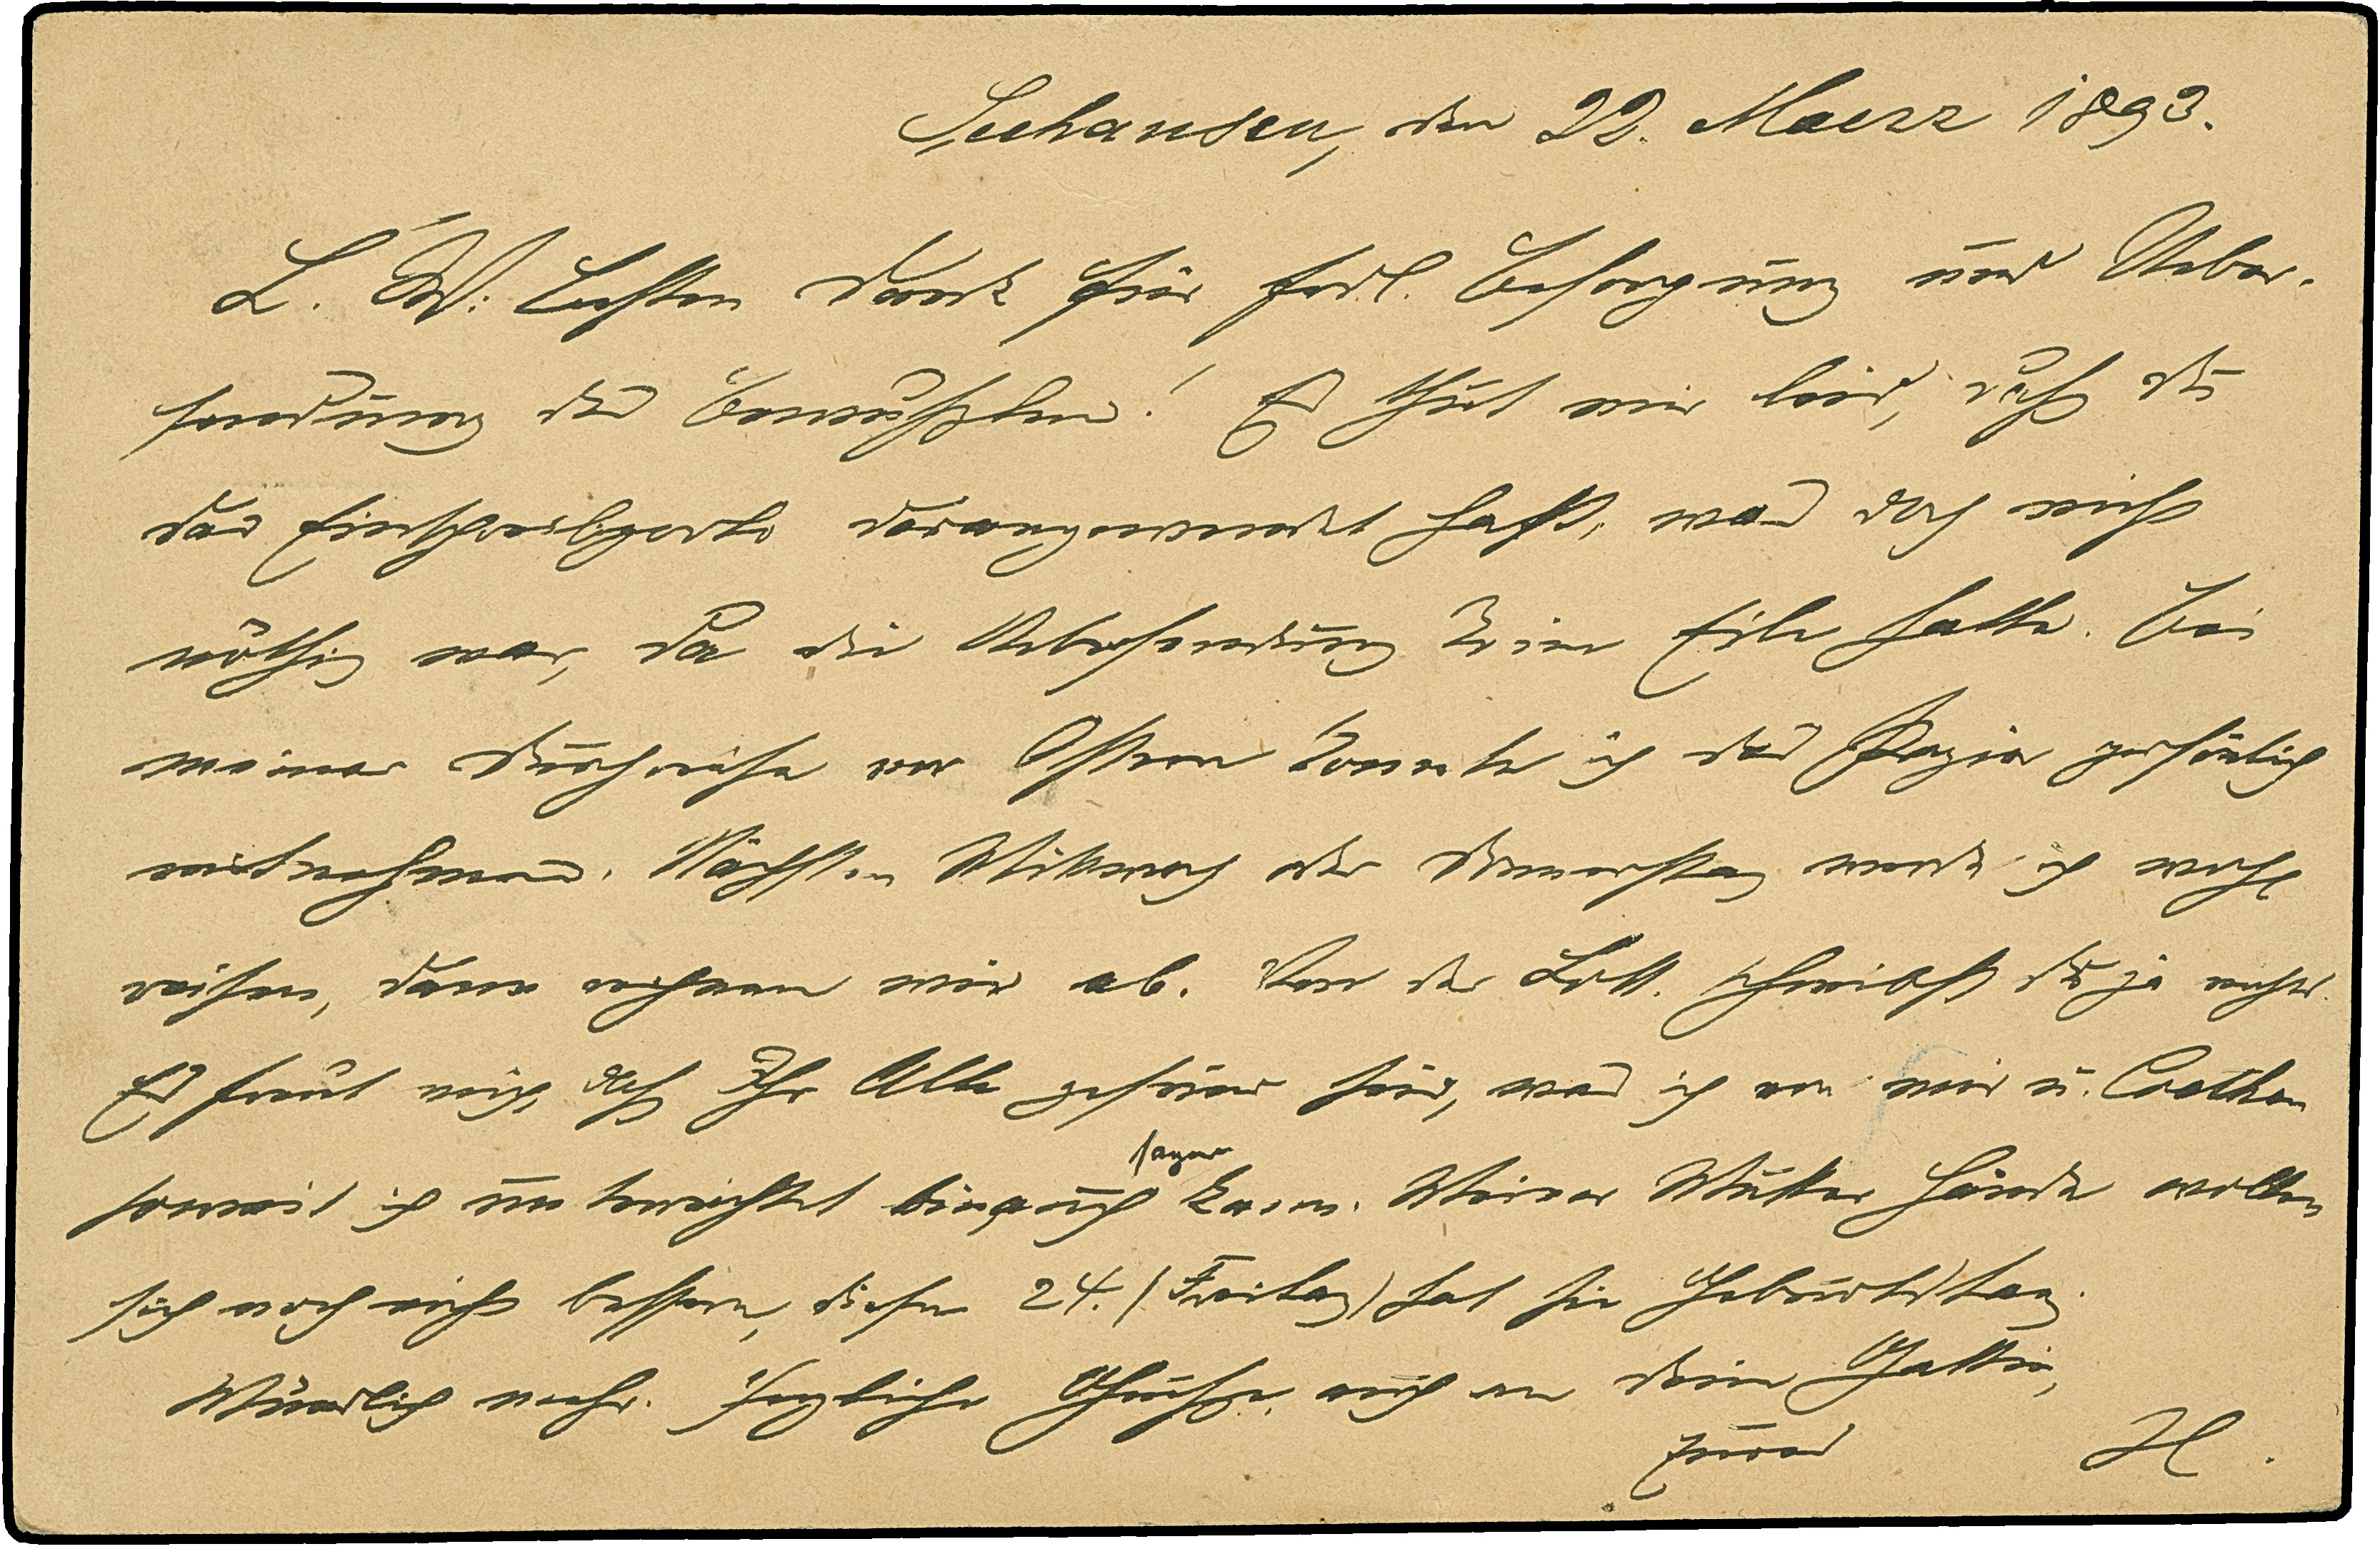 Seehausen, den 22. Maerz 1893.
L. W. Besten Dank für frdl. Besorgung und Ueber-
sendung des! Es thut mir leid, daß Du
das Einschreibeporto darangewendet hast, was doch nicht
nöthig war, da die Uebersendung keine Eile hatte. Bei
meiner Durchreise vor Ostern konnte ich das Papier persönlich
mitnehmen. Nächsten Mittwoch oder Donnerstag werde ich wohl
reisen, dann ab. Von der Lott. schreibst Du ja nichts.
Es freut mich, daß Ihr Alle gesund seid, was ich von mir u. Coethen
soweit ich unterrichtet bin, auch sagen kann. Meiner Mutter Hände wollen
sich noch nicht bessern, diesen 24. (Freitag) hat sie Geburtstag.
Mündlich mehr. Herzliche Grüße, auch an Deine Gattin,
Eures H.